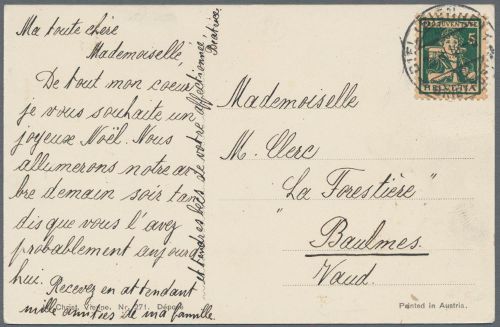 Ma toute chère
Mademoiselle,
De tout mon coeur
je vous souhaite un
joyeux Noël. Nous
allumerons notre ar
bre demain soir tan
dis que vous l'avez
probablement aujourd
hui.
Recevez en attendant
mille amitiés de ma famille
et tendres baisers de votre affectionnée
Béatrice.
Mademoiselle
M. Clerc
"La Forestière"
Baulmes.
Vaud.
PRO JUVENTUTE
5
HELVETIA
Christ. Vienne. Nr. 371. Déposé
Printed in Austria.